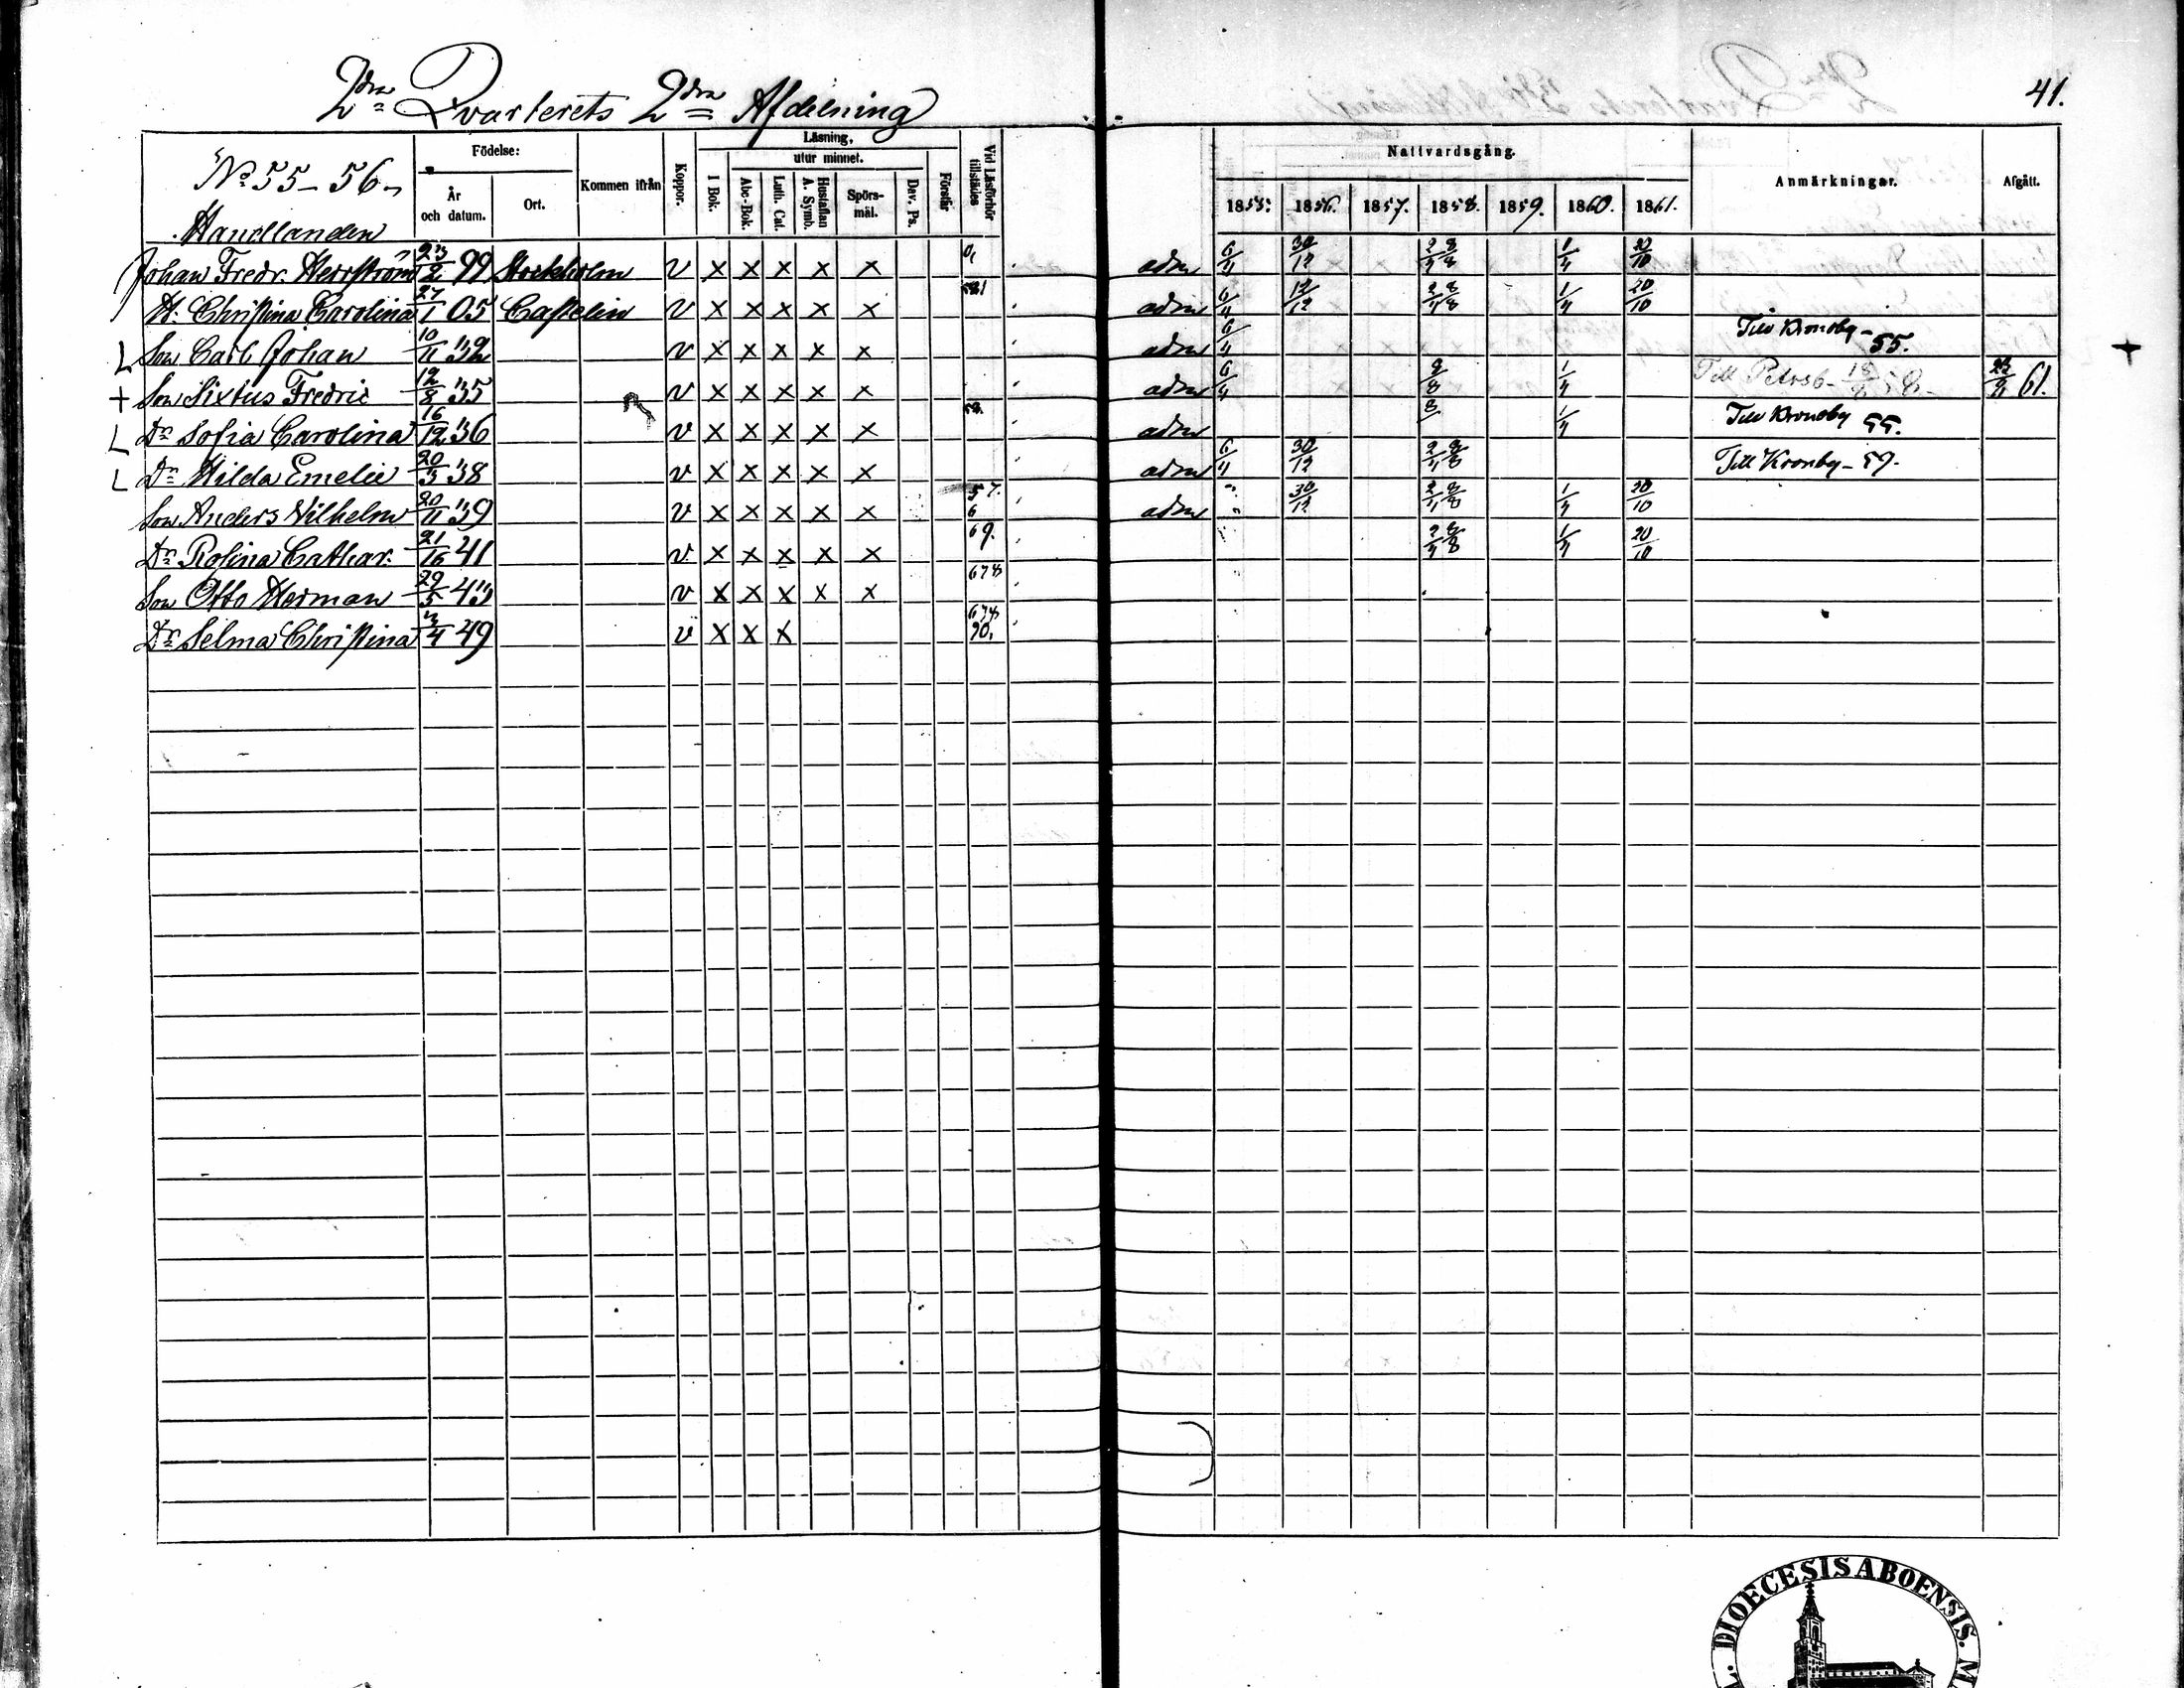 2dra Qvarterets 2dra Afdelning
41.
No 55-56
Födelse:
År och datum.
Ort.
Kommen ifrån
Koppor.
Läsning,
utur minnet.
I Bok.
Abc-Bok.
Luth. Cat.
Hustaflan A. Symb.
Spörsmål.
Dav. Ps.
Förstår
Vid Läsförhör tillstädes
Nattvardsgång.
1855. 1856. 1857. 1858. 1859. 1860. 1861.
Anmärkningar.
Afgått.
Handlanden
Johan Fredr. Herrström 23/2 99 Stockholm v x x x x x adm 6/4 30/12 2/4 8/8 1/4 20/10
H. Christina Carolina 27/1 05 Castelin v x x x x x adm 6/4 12/12 2/4 8/8 1/4 20/10
L Son Carl Johan 10/11 32 v x x x x x adm 6/4 Till Kronoby 55.
+ Son Sixtus Fredric 12/8 35 v x x x x x adm 6/4 8/8 1/4 Till Petersb. 18/8 58 61.
L Dr Sofia Carolina 16/12 36 v x x x x x adm 8/ 1/4 Till Kronoby 55.
L Dr Hilda Emelie 20/3 38 v x x x x x adm 6/4 30/12 2/4 8/8 Till Kronby - 59.
Son Anders Vilhelm 20/11 39 v x x x x x 57. 6 adm 30/12 2/4 8/8 1/4 20/10
Dr Rosina Cathar. 21/10 41 v x x x x x 69. 2/4 8/8 1/4 20/10
Son Otto Herman 29/5 43 v x x x x x 678
Dr Selma Christina 3/4 49 v x x x 678 90.
DIOECESIS ABOENSIS.